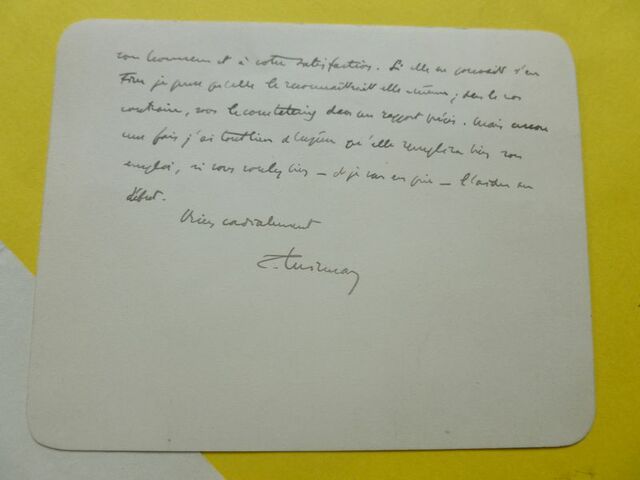 son honneur et à votre satisfaction. Si elle ne pouvait s'en
tirer je pense qu'elle le reconnaîtrait elle-même ; dans le cas
contraire, vous le constateriez dans un rapport précis. Mais encore
une fois j'ai tout lieu d'espérer qu'elle remplira bien son
emploi, si vous voulez bien — et je vous en prie — l'aider au
début.
Bien cordialement